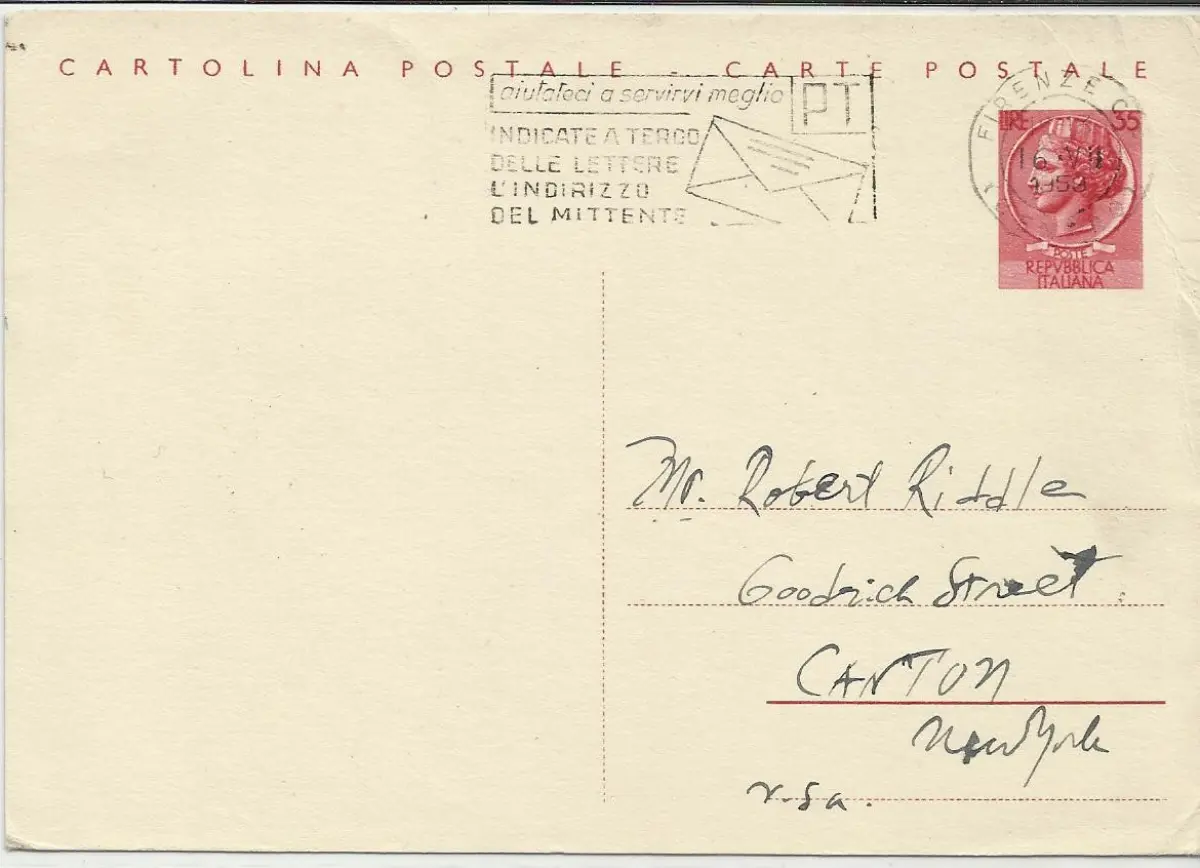 CARTOLINA POSTALE - CARTE POSTALE
aiutateci a servirvi meglio
PT
INDICATE A TERGO
DELLE LETTERE
L'INDIRIZZO
DEL MITTENTE
FIRENZE
16
1958
LIRE 35
POSTE
REPVBBLICA
ITALIANA
Mr. Robert Riddle
Goodrich Street.
CANTON
New York
U.S.a.